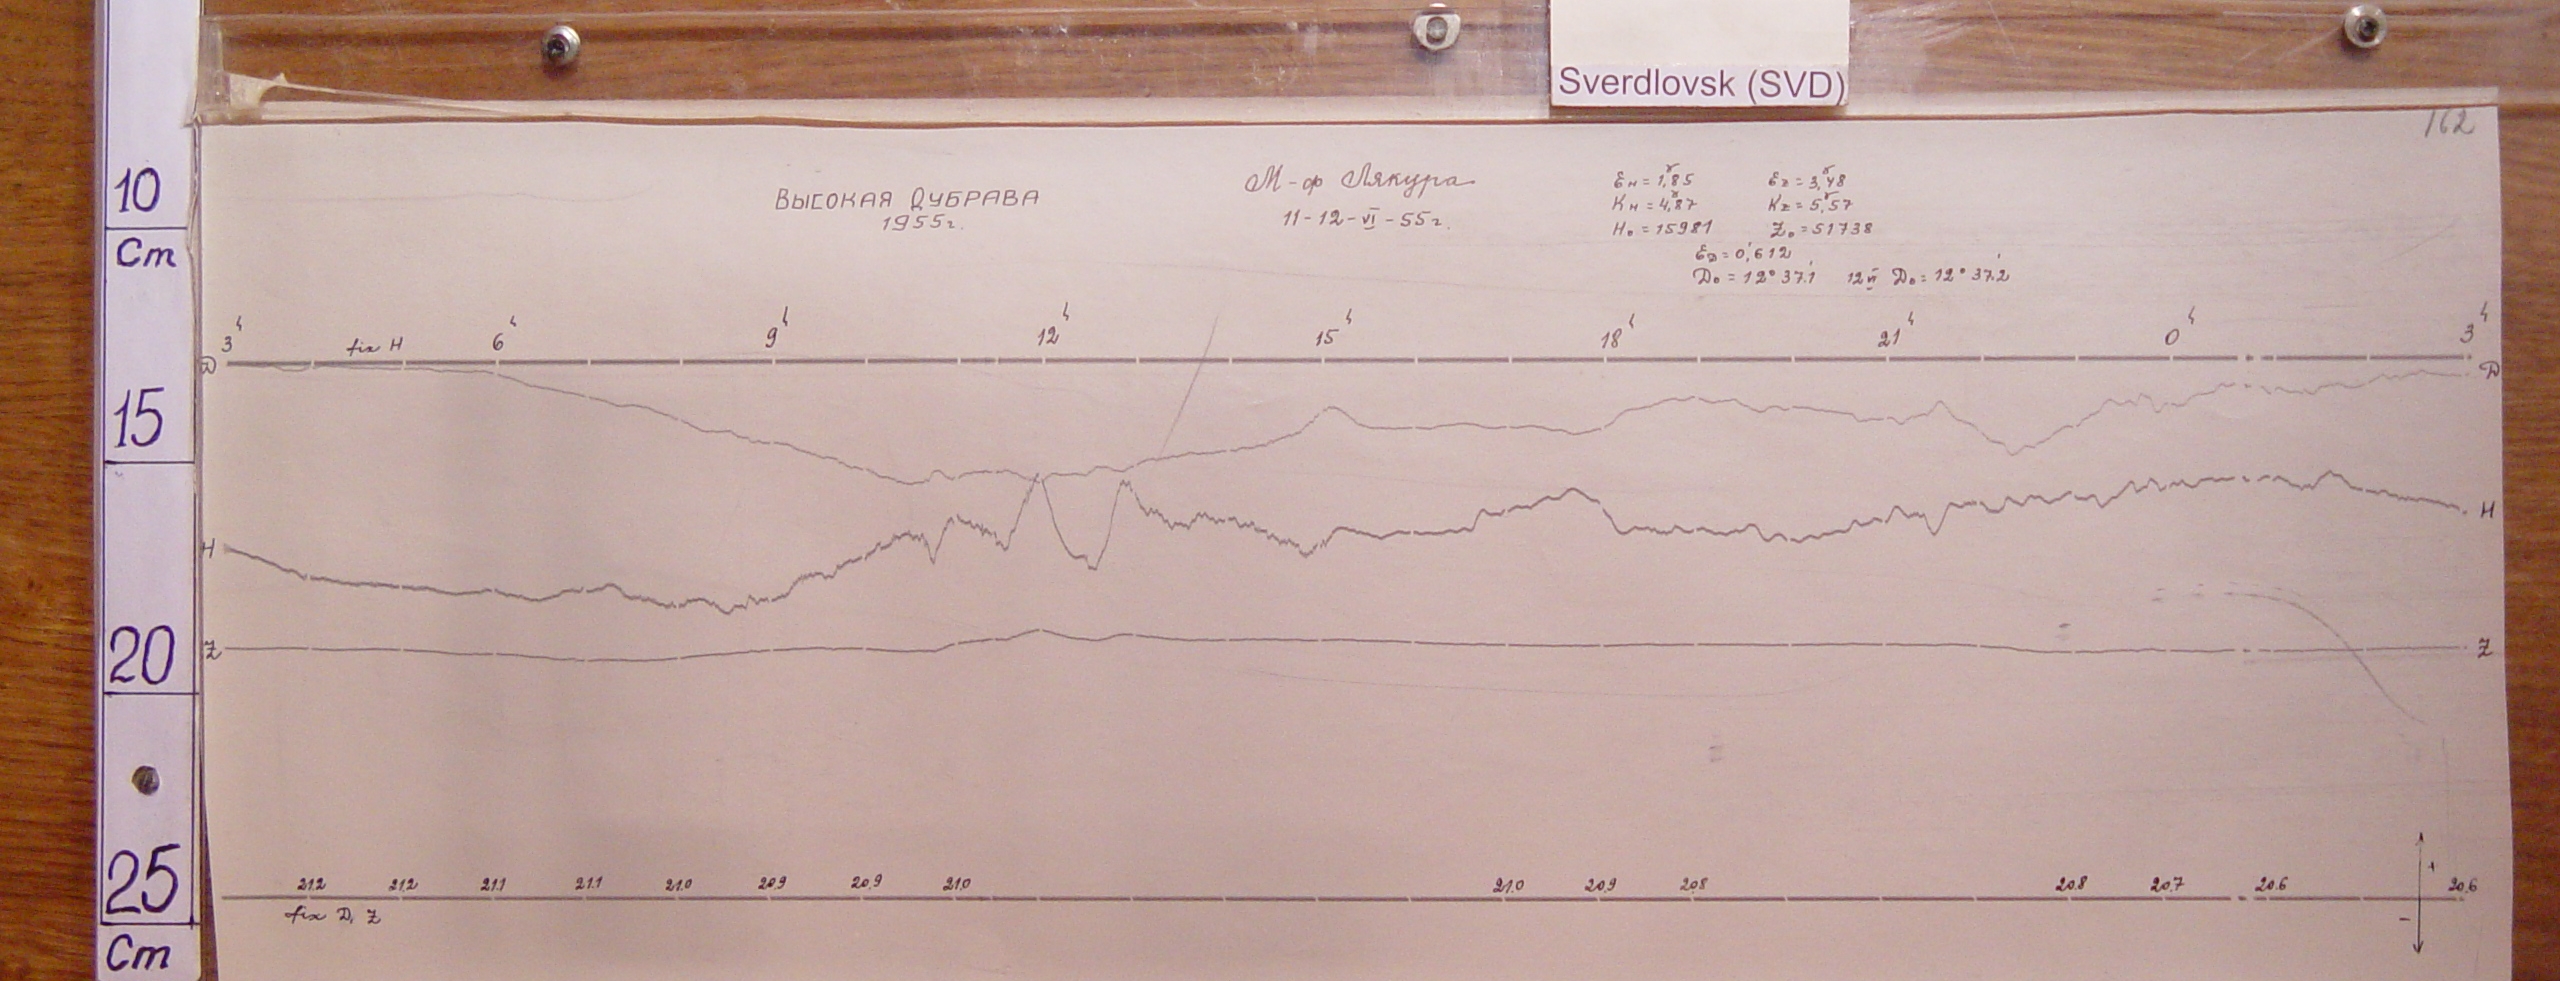 Sverdlovsk (SVD)
162
10
Cm
15
20
25
Cm
ВЫСОКАЯ ДУБРАВА
1955г.
М-ф Лякура
11-12-VI-55г.
Eн = 1,85 Ez = 3,48
Kн = 4,87 Kz = 5,57
H₀ = 15981 Z₀ = 51738
ED = 0,612
D₀ = 12° 37,1 12 VI D₀ = 12° 37,2
3ʰ fix H 6ʰ 9ʰ 12ʰ 15ʰ 18ʰ 21ʰ 0ʰ 3ʰ
D D
H H
Z Z
21.2 21.2 21.1 21.1 21.0 20.9 20.9 21.0 21.0 20.9 20.8 20.8 20.7 20.6 20.6
fix D, Z
+
-